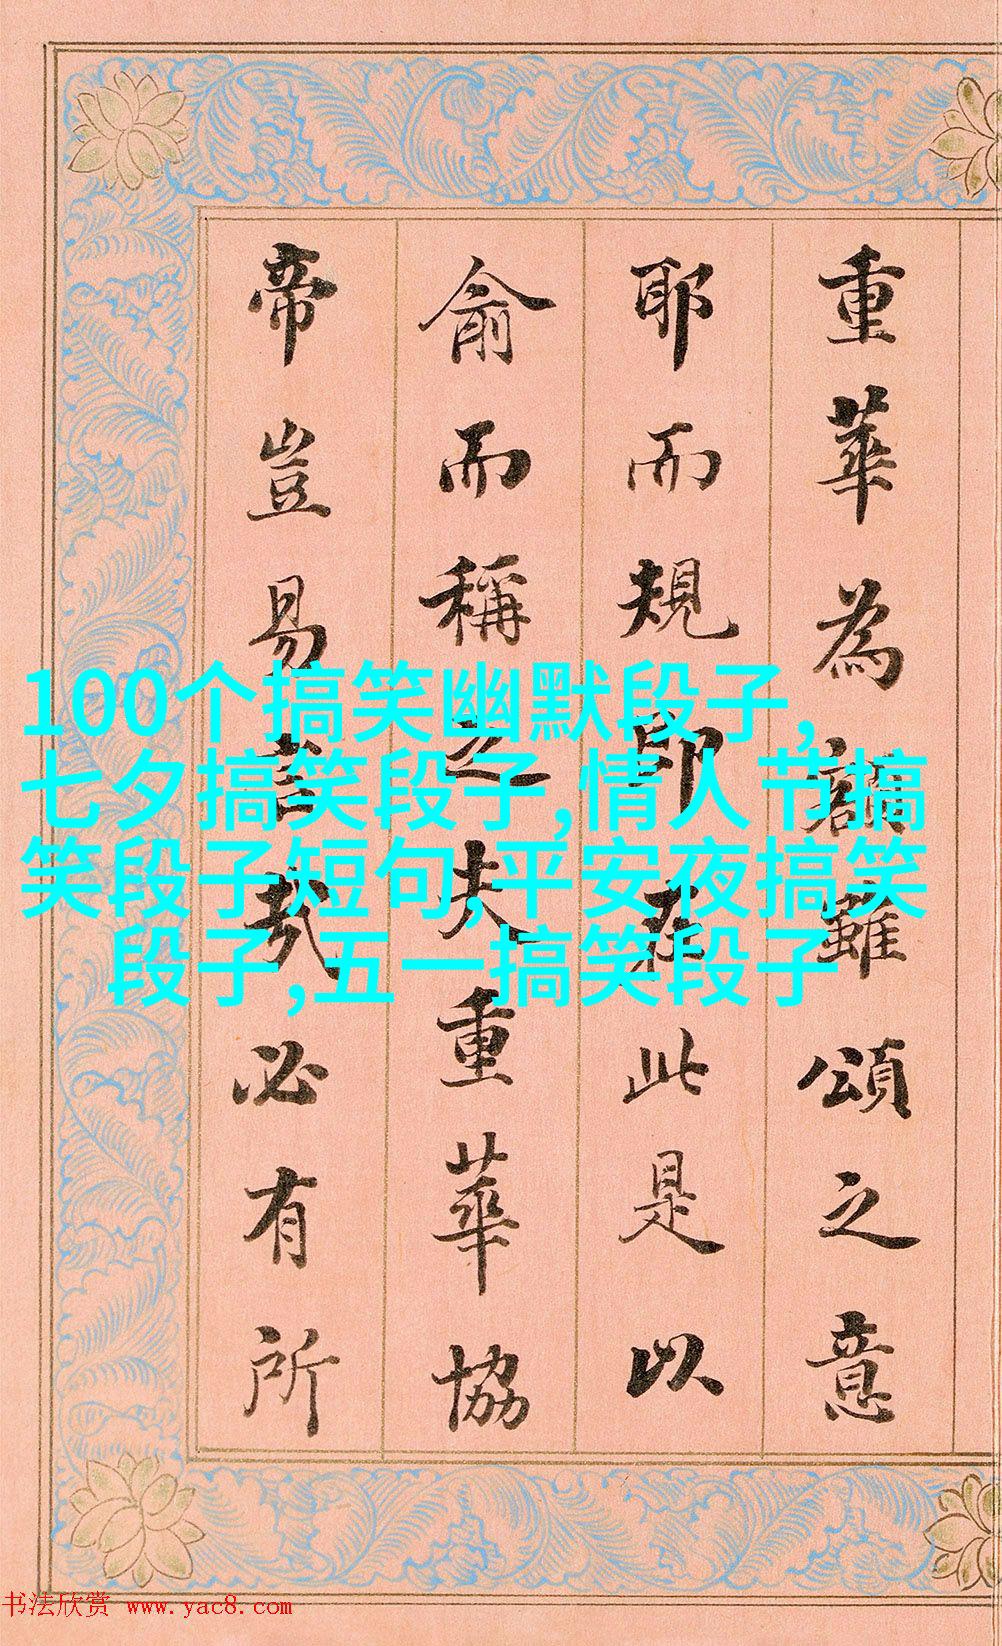 重華為額雖頌之意
耶而規即在此是以
俞而稱之夫重華協
帝豈易言哉必有所
100个搞笑幽默段子,
七夕搞笑段子,情人节搞
笑段子短句,平安夜搞笑
段子,五一搞笑段子
书法欣赏 www.yac8.com